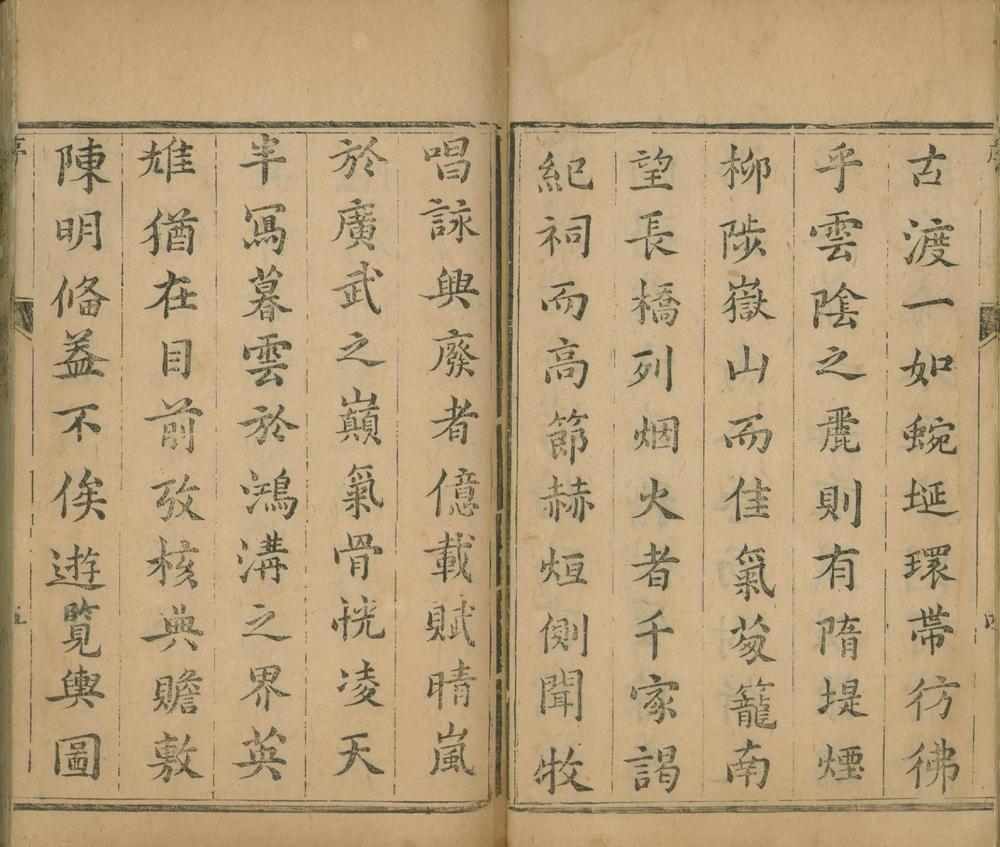 古渡一如蜿埏環帶彷彿
乎雲陰之麗則有隋堤煙
柳陟嶽山而佳氣葱籠南
望長橋列烟火者千家謁
紀祠而高節赫烜側聞牧
唱詠興廢者億載賦晴嵐
於廣武之巔氣骨恍凌天
半寫暮雲於鴻溝之界英
雄猶在目前攷核典贍敷
陳明俻益不俟遊覽輿圖